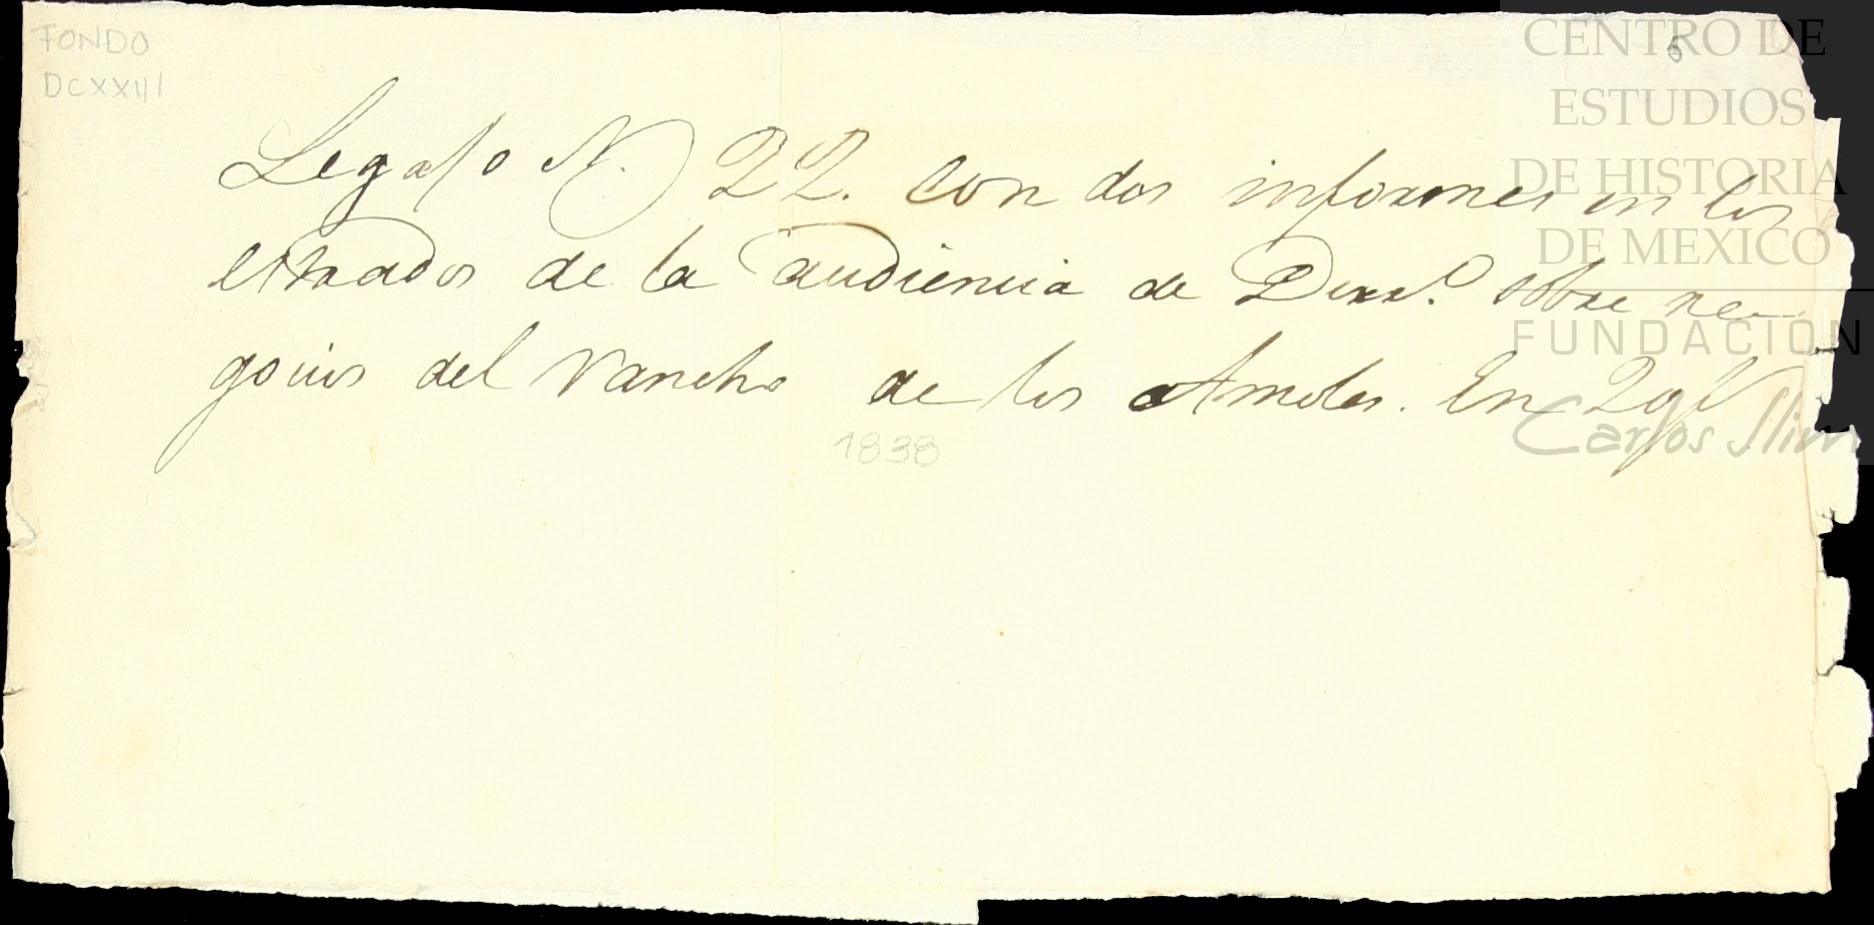 FONDO
DCXXIII
5
Legajo N. 22. con dos informes en los
estrados de la audiencia de Dur.º sobre ne-
gocios del rancho de los Amoles. En 20 f
1838
CENTRO DE
ESTUDIOS
DE HISTORIA
DE MEXICO
FUNDACIÓN
Carlos Slim